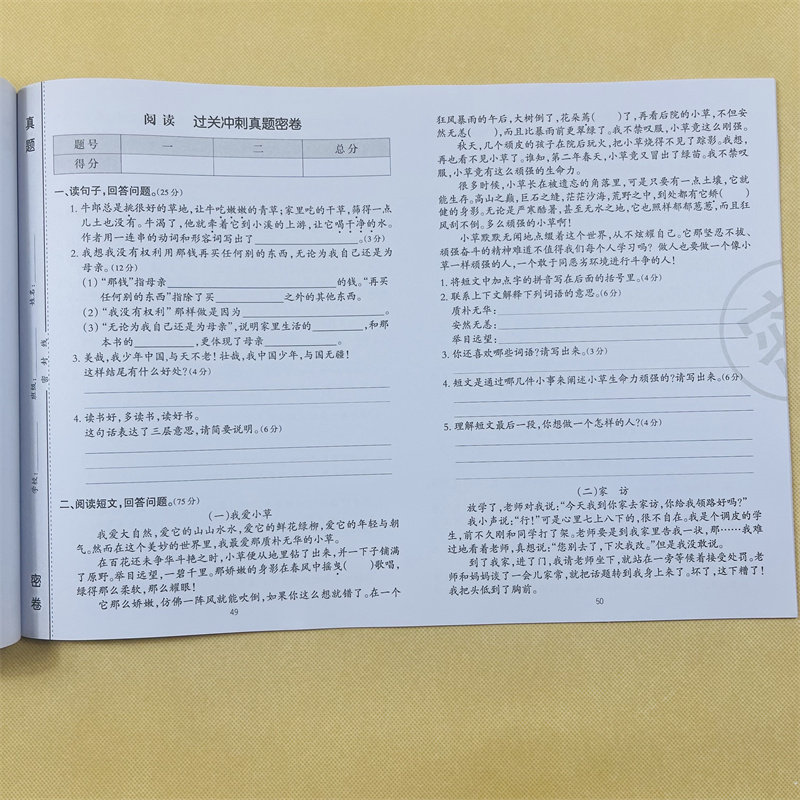 真题
学校:
班级:
姓名:
密 封 线
密卷
阅读 过关冲刺真题密卷
题号 一 二 总分
得分
一、读句子,回答问题。(25分)
1. 牛郎总是挑很好的草地,让牛吃嫩嫩的青草;家里吃的干草,筛得一点
儿土也没有。牛渴了,他就牵着它到小溪的上游,让它喝干净的水。
作者用一连串的动词和形容词写出了 。(3分)
2. 我想我没有权利用那钱再买任何别的东西,无论为我自己还是为
母亲。(12分)
(1)“那钱”指母亲 的钱。“再买
任何别的东西”指除了买 之外的其他东西。
(2)“我没有权利”那样做是因为 。
(3)“无论为我自己还是为母亲”,说明家里生活的 ,和那
本书的 ,更体现了母亲 。
3. 美哉,我少年中国,与天不老!壮哉,我中国少年,与国无疆!
这样结尾有什么好处?(4分)
4. 读书好,多读书,读好书。
这句话表达了三层意思,请简要说明。(6分)
二、阅读短文,回答问题。(75分)
(一)我爱小草
我爱大自然,爱它的山山水水,爱它的鲜花绿柳,爱它的年轻与朝
气。然而在这个美妙的世界里,我最爱那质朴无华的小草。
在百花还未争华斗艳之时,小草便从地里钻了出来,并一下子铺满
了原野。举目远望,一碧千里。那娇嫩的身影在春风中摇曳( )歌唱,
绿得那么柔软,那么耀眼!
它那么娇嫩,仿佛一阵风就能吹倒,如果你这么想就错了。在一个
49
狂风暴雨的午后,大树倒了,花朵蔫( )了,再看后院的小草,不但安
然无恙( ),而且比暴雨前更翠绿了。我不禁叹服,小草竟这么刚强。
秋天,几个顽皮的孩子在院后玩火,把小草烧得不见了踪影。我想,
再也看不见小草了。谁知,第二年春天,小草竟又冒出了绿苗。我不禁叹
服,小草竟有这么顽强的生命力。
很多时候,小草长在被遗忘的角落里,可是只要有一点土壤,它就
能生存。高山之巅,巨石之缝,茫茫沙海,荒野之中,到处都有它矫( )
健的身影。无论是严寒酷暑,甚至无水之地,它也照样郁郁葱葱,而且狂
风刮不倒。多么顽强的小草啊!
小草默默无闻地点缀着这个世界,从不炫耀自己。它那坚忍不拔、
顽强奋斗的精神难道不值得我们每个人学习吗? 做人也要做一个像小
草一样顽强的人,一个敢于同恶劣环境进行斗争的人!
1. 将短文中加点字的拼音写在后面的括号里。(4分)
2. 联系上下文解释下列词语的意思。(6分)
质朴无华:
安然无恙:
举目远望:
3. 你还喜欢哪些词语?请写出来。(3分)
4. 短文是通过哪几件小事来阐述小草生命力顽强的?请写出来。(6分)
5. 理解短文最后一段,你想做一个怎样的人?(4分)
(二)家 访
放学了,老师对我说:“今天我到你家去家访,你给我领路好吗?”
我小声说:“行!”可是心里七上八下的,很不自在。我是个调皮的学
生,前不久刚和同学打了架。老师要是到我家里告我一状,那……我难
过地看着老师,真想说:“您别去了,下次我改。”但是我没敢说。
到了我家,进了门,我请老师坐下,就站在一旁等候着接受处罚。老
师和妈妈谈了一会儿家常,就把话题转到我身上来了。坏了,这下糟了!
我把头低到了胸前。
50